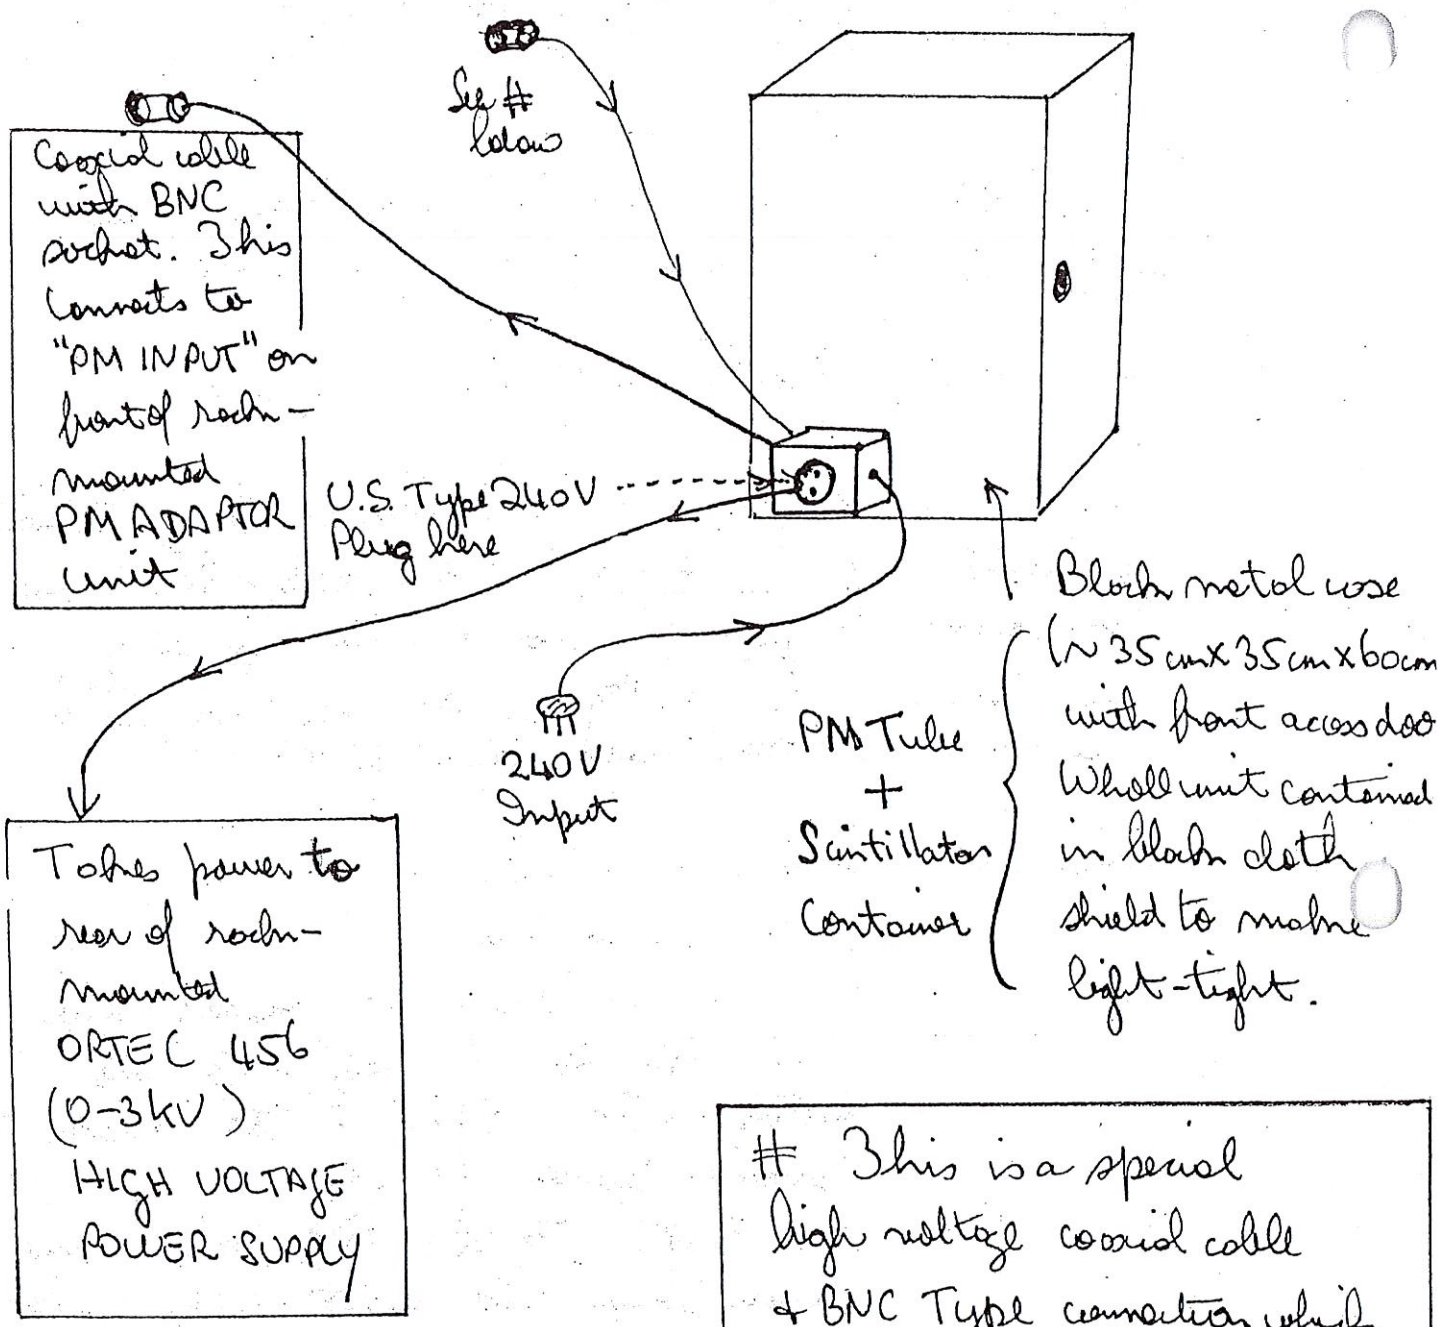 See #
below
Coaxial cable
with BNC
socket. This
connects to
"PM INPUT" on
front of rack-
mounted
PM ADAPTOR
unit
U.S. Type 240V
Plug here
240V
Input
Black metal case
(~35cm x 35cm x 60cm
with front access doo
Whole unit contained
in black cloth
shield to make
light-tight.
PM Tube
+
Scintillator
Container
Takes power to
rear of rack-
mounted
ORTEC 456
(0-3kV)
HIGH VOLTAGE
POWER SUPPLY
# This is a special
high voltage coaxial cable
+ BNC Type connection which